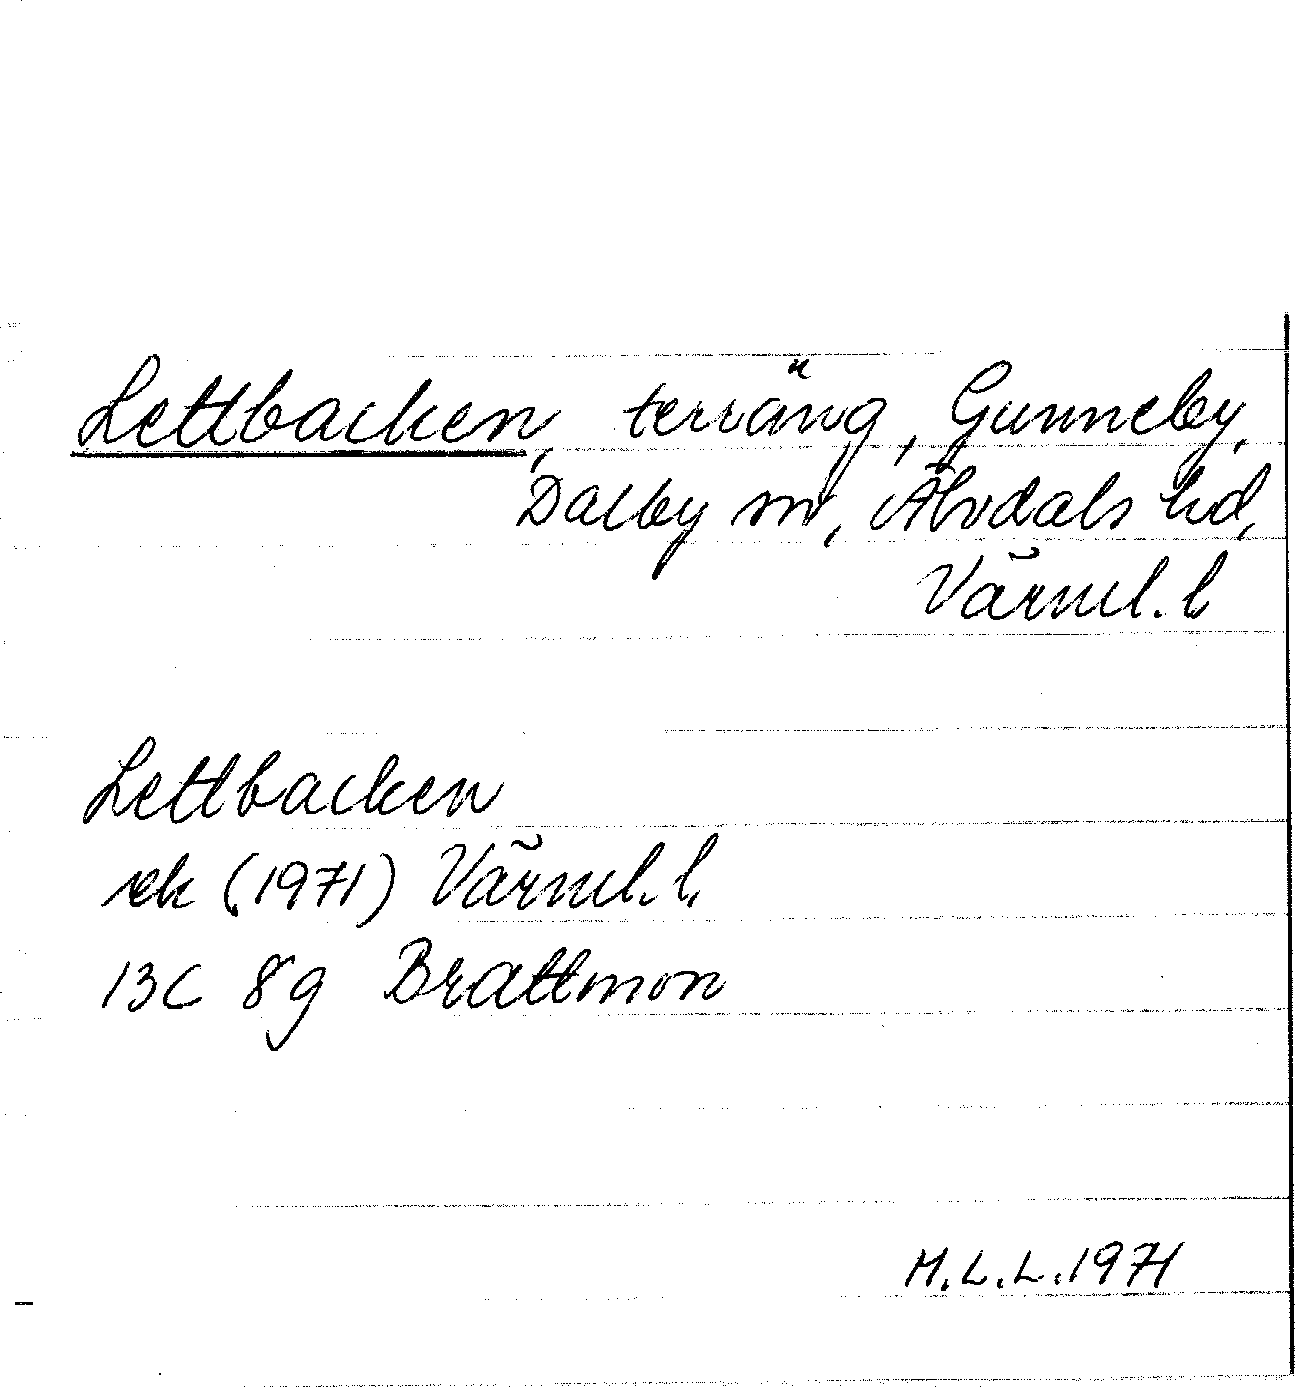 Lettbacken, terräng, Gunneby,
Dalby sn, Älvdals hd,
Värml. l
Lettbacken
ek (1971) Värml. l.
13C 8g Brattmon
M.L.L. 1971